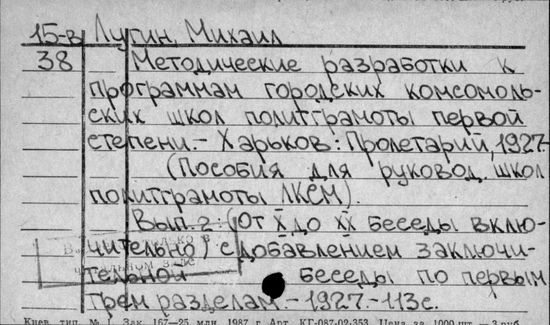 15-в Лугин, Михаил
38 Методические разработки к
программам городских комсомоль-
ских школ политграмоты первой
степени.- Харьков: Пролетарий, 1927-
(Пособия для руковод. школ
политграмоты ЛКСМ).
Вып. 2: (От X до XX беседы вклю-
чительно) с добавлением заключи-
тельной беседы по первым
трем разделам.-1927.-113с.
Киев. тип. № 1. Зак. 167—25 млн. 1987 г. Арт. КГ-087-02-353. Цена за 1000 шт.— 3 руб.